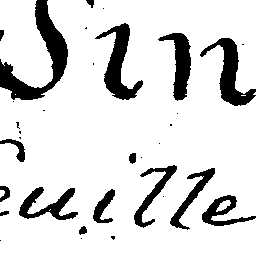 Sin
euille